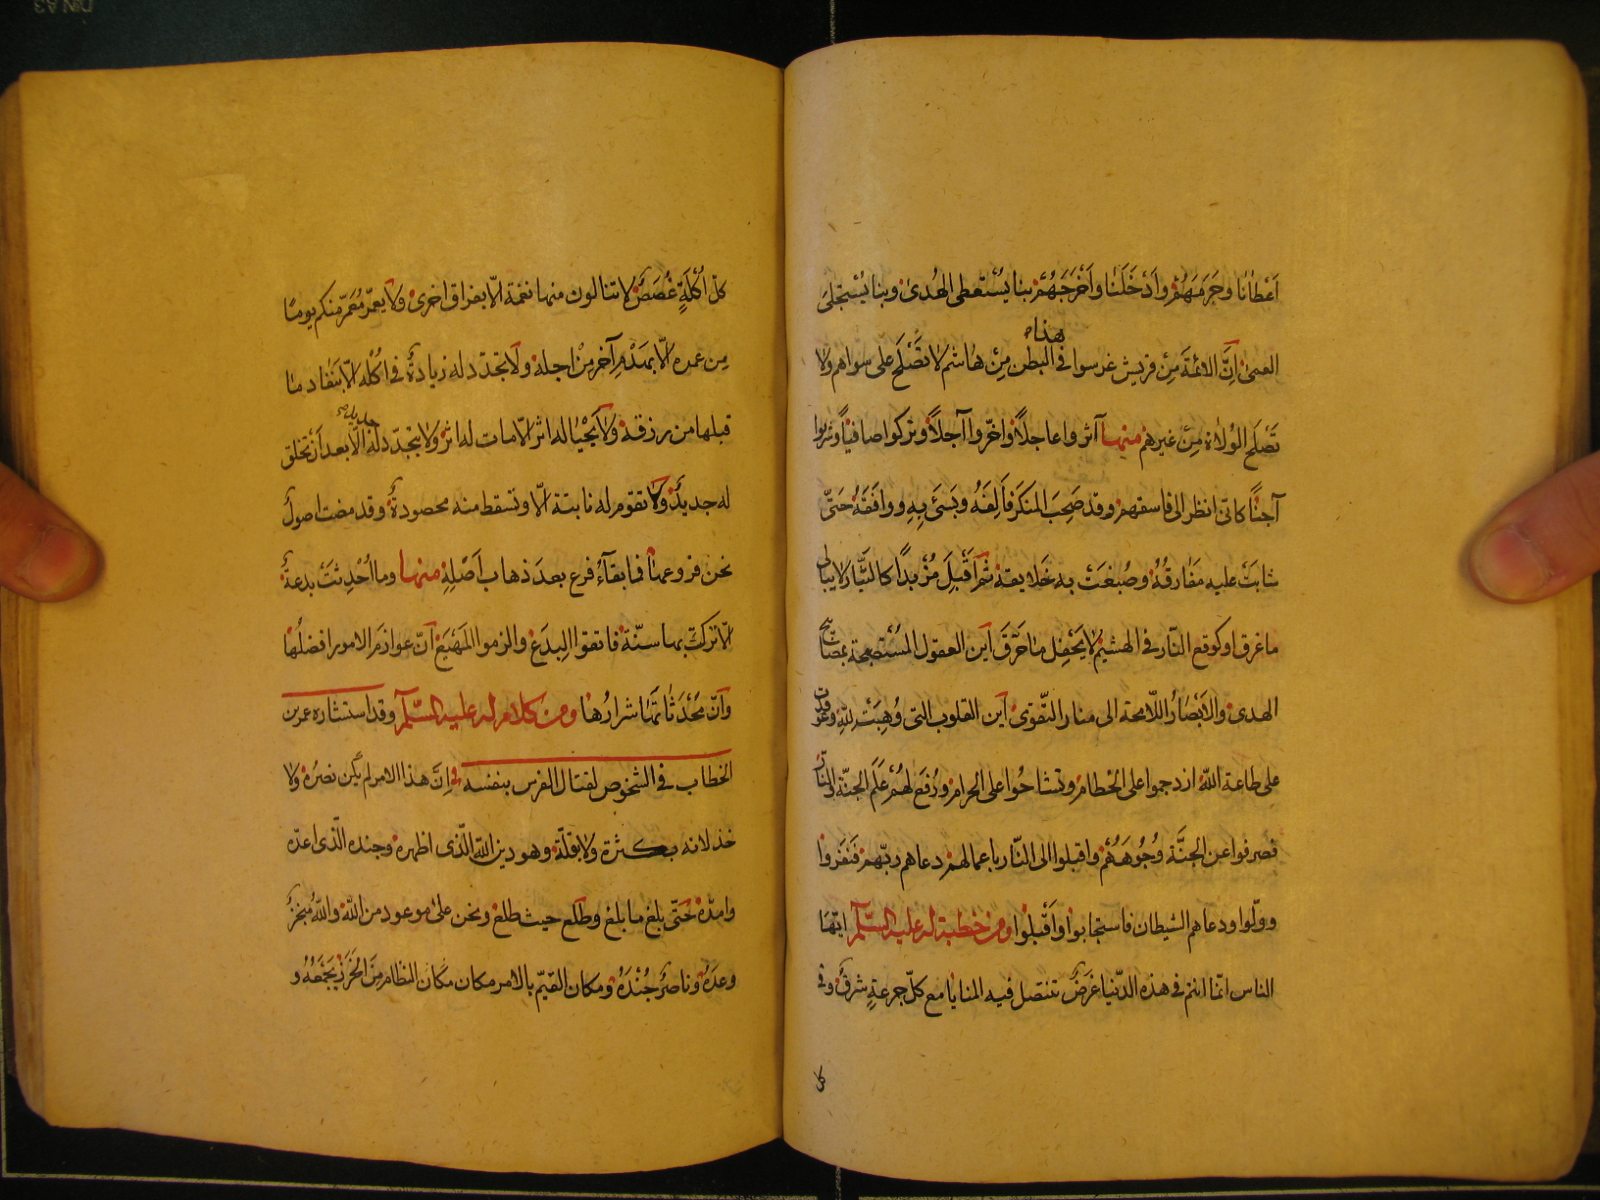 اَعْطانٰا وَحَرَمَهُمْ وَاَدْخَلَنٰا وَاَخْرَجَهُمْ بنا يُسْتَعطى الهُدىٰ وبنا يُسْتجلىَ
هذا
العمىٰ اِنَّ الائمّةَ مِنْ قريش غرسوا فى البطن مِنْ هٰاشم لا تَصْلَح على سواهم ولا
تَصْلَح الوُلاة مِنْ غيرهم منهـا آثروا عاجلاً واخّروا آجلاً وتركوا صافياً وشربوا
آجناً كانى انظر الى فاسقهم وقد صَحِبَ المنكَر فَاَلِفَهُ وبَسَئَ بِهِ ووافَقَهُ حَتّى
شابَتْ عليه مَفَارقُهُ وصُبغَتْ به خَلايقه ثم اَقْبلَ مُزْبداً كالتيّار لا يبالى
ما غرق او كوقع النّار فى الهشيم لا يَحْفِل مٰا حَرّقَ اَين العقول المُسْتصبحة بمصابيح
الهدى والاَبْصارُ اللامحة الى منار التّقوىٰ اَين القلوب التى وُهِبَتْ لِلّهِ وعوقدت
على طاعة اللّه ازدحموا على الحُطام وتشاحّوا على الحرام ورُفعَ لهُم عَلَم الجنّة والنّار
فصرفوا عن الجنَّة وُجُوهَهُمْ واقبلوا الى النّار باعمالهم دعاهم ربّهم فنَفَروا
وولّوا ودعاهم الشيطان فاستجابوا واَقْبلوا ومن خطبة له عليه السّلم ايّها
الناس انّما انتم فى هذه الدّنيا غرَضٌ تنتضل فيه المنايا مع كلّ جرعةٍ شرقٌ وفى
كل
كلّ اُكْلَةٍ غُصَصٌ لا تنالون منها نعمة الّا بفراق اخرىٰ ولا يعمّر مُعَمَّر منكم يومًا
مِن عمره الّا بهَدْمِ آخر مِنْ اجله ولا تجدّد له زيادةٌ فى اكْله الّا بنَفاد مٰا
قبلها من رزقه ولا يَحْيٰا له اثر الّا مات له اثرٌ ولا يتجدّد له الّا بعد اَنْ يخلق
جديد
له جديدٌ ولا تقوم له نابتة الّا وتسقط منه محصودةٌ وقد مضت اصولٌ
نحن فروعها فما بقآءُ فرع بعدَ ذهاب اَصْلِهِ منهـا وما اُحْدِثَتْ بدعةٌ
الّا تُرِكَ بها سنّة فاتقوا البِدَعَ والزموا المَهْيَعَ اَنّ عوازمَ الامور افضلُها
وَاَنّ مُحْدَثٰاتها شرارُها ومن كلام له عليه السّلم وقد استشاره عمر بن
الخطاب فى الشخوص لقتال الفرس بنفسه اِنّ هذا الامر لم يكن نصرُه ولا
خذلانه بكثرة ولا بقلّة وهو دين اللّه الّذى اظهره وجنده الّذى اعدّه
وامدّه حَتّى بلغ ما بلغ وطَلَع حيث طلع ونحن على موعود من اللّه واللّهُ مُنجِزٌ
وعدَهُ وناصرٌ جُنْدَهُ ومكان القيّم بالامر مكان النظام مِنَ الخَرَزِ يَجْمَعُهُ و